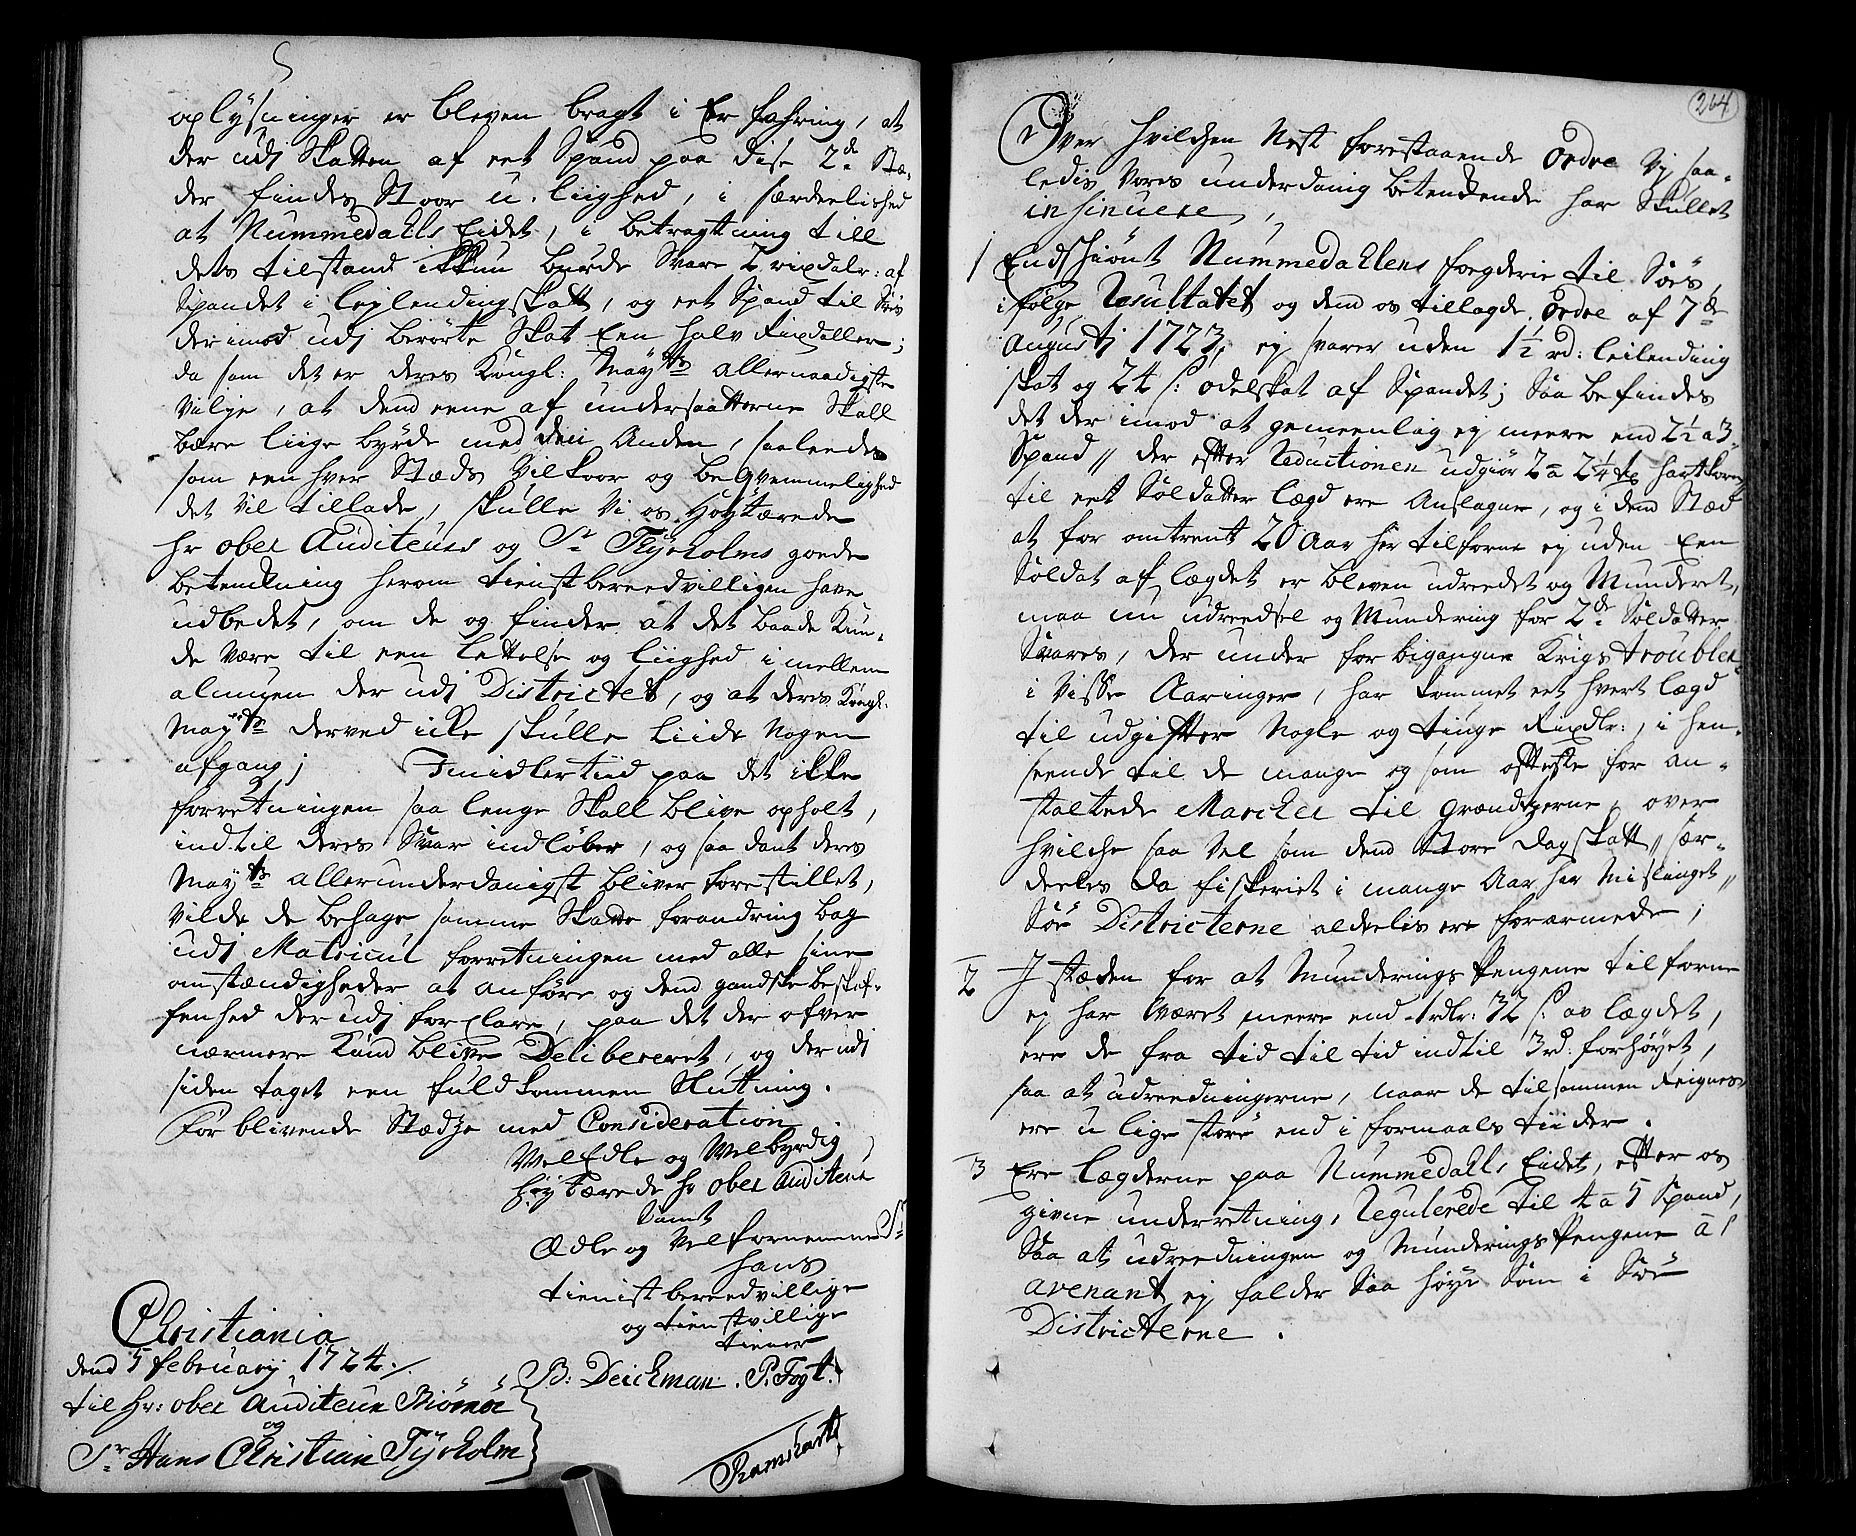 oplysninger er bleven bragt i Erfahring, at
der udj Skatten af eet Spand paa disse 2de Stæ-
der findes Stoor u-liighed, i særdeelished
at Nummedahls Eidet, i betragtning till
dets tilstand ikkun burde Svare 2 rixdalr: af
Spandet i leylendingskatt, og eet Spand til Søes
derimod udj berørte Skat Een halv Rixdaller;
da som det er deres Kongl: Mayts allernaadigste
Vilje, at dend eene af undersaatterne Skall
bære liige byrde med den Anden, saaleedes
som een hver Stæds Vilkoor og beqvemmelighed
det vil tillade, skulle Vi os Høytærede
Hr ober Auditeurs og Sr Tyrholms goede
betenkning herom tienstbereedvilligen have
udbedet, om de og finder at det baade Kun-
de være til een lettelse og liighed i mellem
almuen der udj Districtet, og at deres Kongl.
Mayts derved icke skulle liide Nogen
afgang; Imidlertiid paa det ikke
forretningen saa lenge Skall blive opholt,
indtil deres Svar indløber, og saadant deres
Mayts allerunderdanigst bliver forestillet,
vilde de behage samme Skatte forandring bag
udj Matricul forretningen med alle sine
omstændigheder at anføre og dend gandske beskaf-
fenhed der udj forclare, paa det der ofver
nærmere Kand blive Delibereret, og der udj
siden taget een fuldkommen Slutning.
Forblivende Stædze med Consideration
WelEdle og Welbyrdig
Høytærede Hr ober Auditeur
Samt
Ædle og Velfornemme Sr
Hans
tienistbereedvillige
og tienstvillige
tiener
Christiania
dend 5 february 1724./
B: Deichman. P: Fogt.
til Hr: ober Auditeur Biørnør
og
Sr Hans Christian Tyrholm
Ramshart
264
Over hvilchen Nest forestaaende Ordre Vj saa-
ledis Vores underdanig betenkende har Skullet
insinuere,
1 Endskiønt Nummedahlens fogderie til Søes,
i følge Resultatet og dend os tillagde Ordre af 7de
Augustj 1723, ej svarer uden 1½ rd: leilending
skat og 24 s: odelskat af Spandet; Saa befindes
det der imod at gemeenlig ej meere end 2½ a 3
Spand // der efter Reductionen udgiør 2 a 2¼ tr hartkorn
til eet Soldatter lægd ere Anslagne, og i dend Stæd
at for omtrent 20 Aar her tilforne ej uden Een
Soldat af lægdet er bleven udreedet og Munderet,
maa nu udreedsel og Mundering for 2de Soldatter
Svares, der under forbigangne Krigs troubler
i Visse Aaringer, har kommet eet hvert lægd
til udgifter Nogle og tiuge Rixdlr:, i hen-
seende til de mange og som ofteste for an-
staltede Marcher til Grændtzerne, over
hvilche saa vel som dend Store dagskatt // sær-
deeles da fiskeriet i mange Aar har Mislinget //
Søe Districterne aldeelis ere forarmede;
2 J stæden for at Munderings Pengene tilforne
ej har Været meere end 1 rdlr: 32 s: av lægdet,
ere de fra tid til tid indtil 3 rd: forhøyet,
saa at udreedningerne, naar de tilsammen Reignes
ere u lige støre end i formaals tiider.
3 Ere lægderne paa Nummedahls Eidet, efter os
givne underretning, Regulerede til 4 a 5 Spand,
Saa at udreedningen og Munderings Pengene a l'
avenant ej falder Saa høye Som i Søe
Districterne.